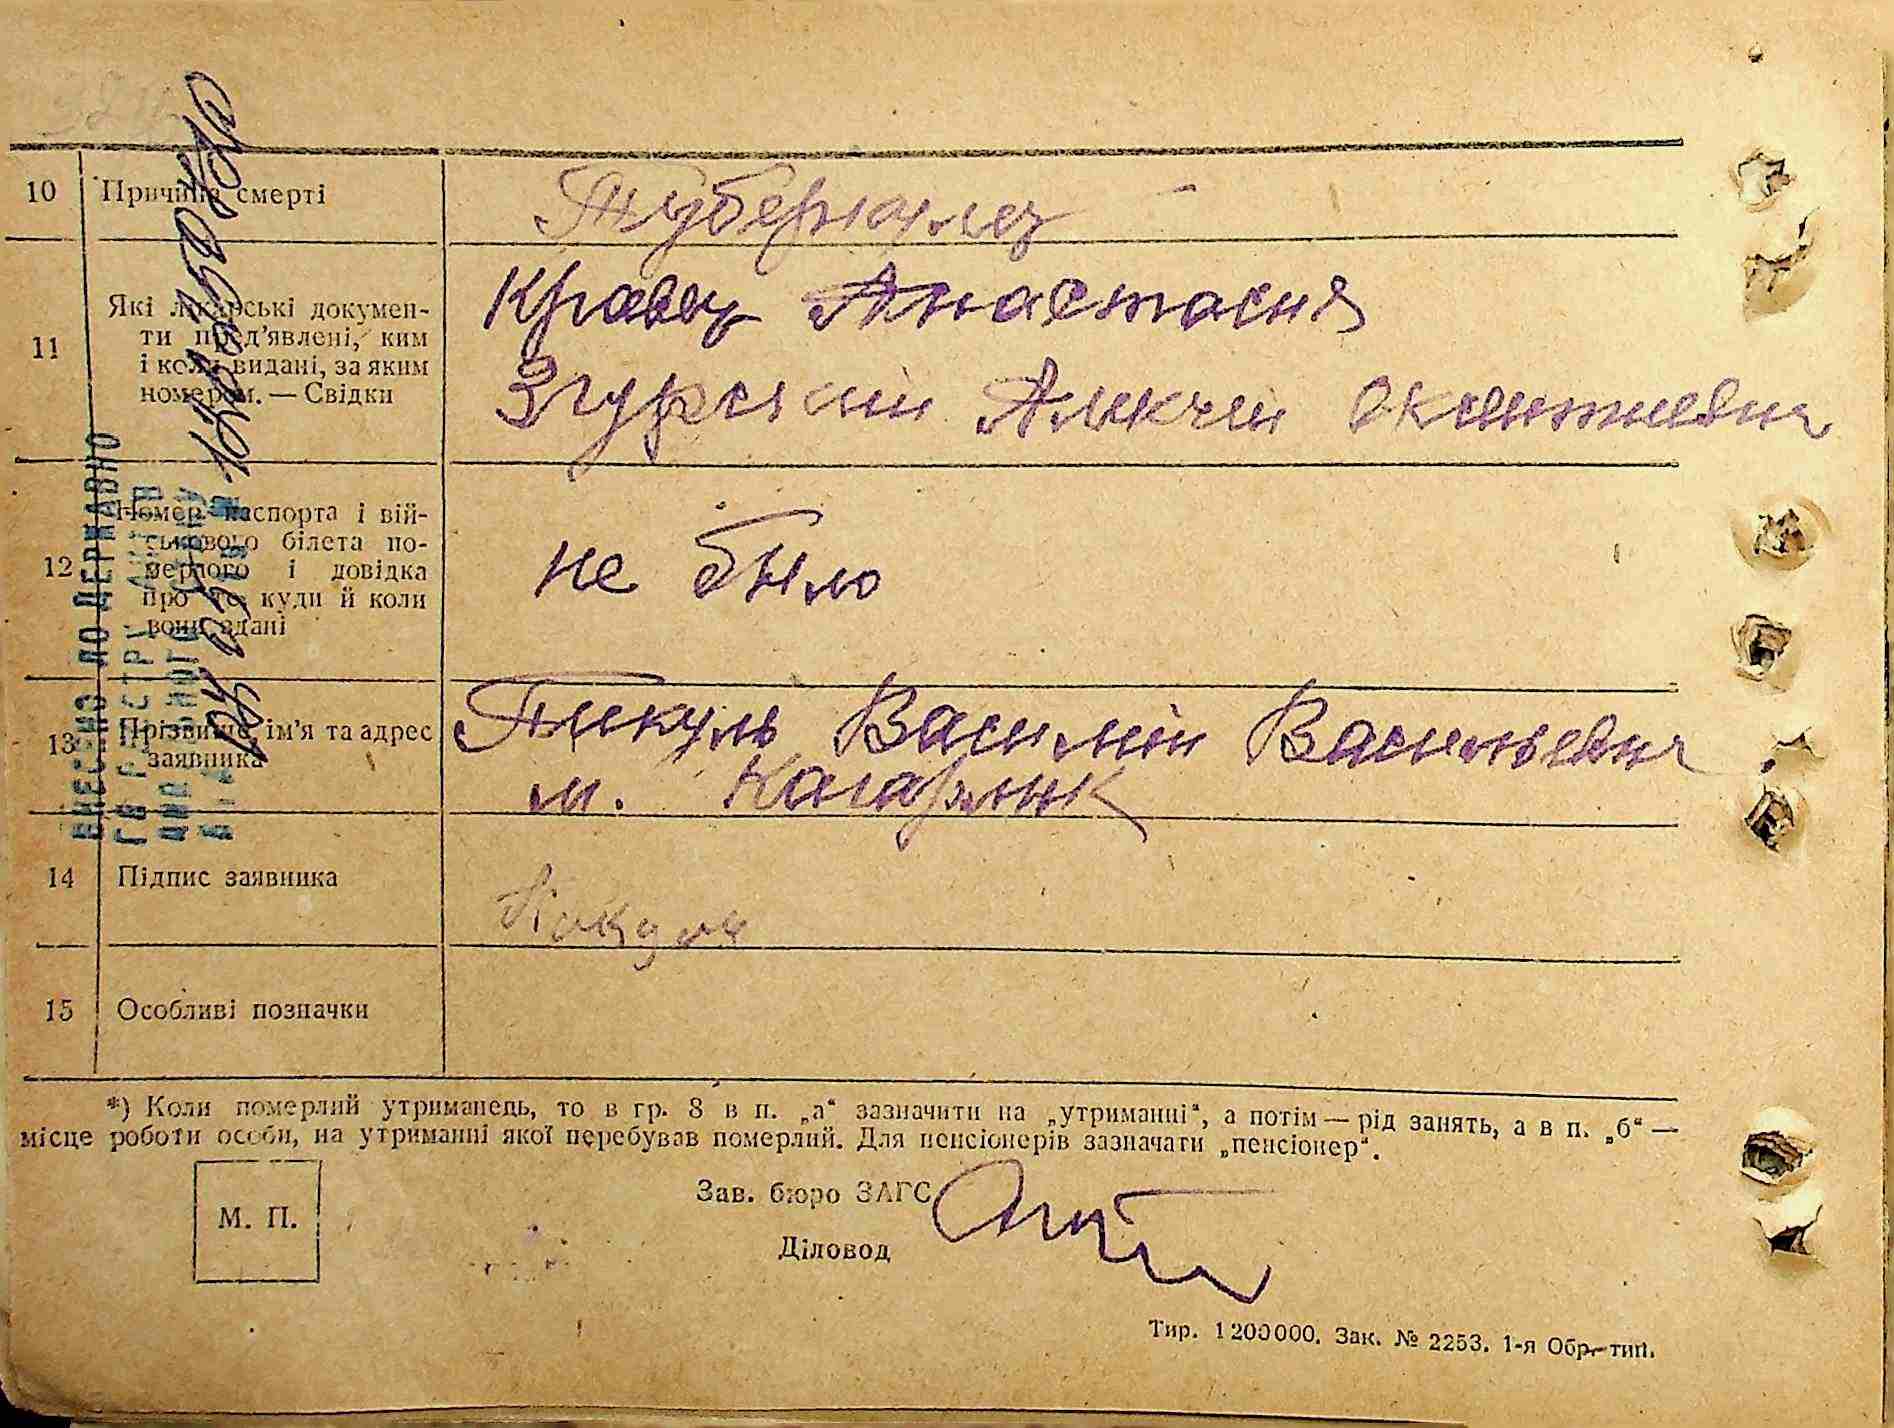 10 Причина смерті
Туберкулез
11 Які лікарські докумен-
ти пред'явлені, ким
і коли видані, за яким
номером. — Свідки
Кравец Анастасия
Згурский Алексей
12 Номер паспорта і вій-
ськового білета по-
мерлого і довідка
про те, куди й коли
вони здані
не было
13 Прізвище, ім'я та адрес
заявника
Пикуль Василий Васильевич
м. Кагарлык
14 Підпис заявника
15 Особливі позначки
ВНЕСЕНО ДО ДЕРЖАВНО
ГО РЕЄСТРУ АКТІВ
ЦИВІЛЬНОГО СТАНУ
*) Коли померлий утриманець, то в гр. 8 в п. „а“ зазначити на „утриманні“, а потім — рід занять, а в п. „б“ —
місце роботи особи, на утриманні якої перебував померлий. Для пенсіонерів зазначати „пенсіонер“.
М. П.
Зав. бюро ЗАГС
Діловод
Тир. 1200000. Зак. № 2253. 1-я Обр. тип.